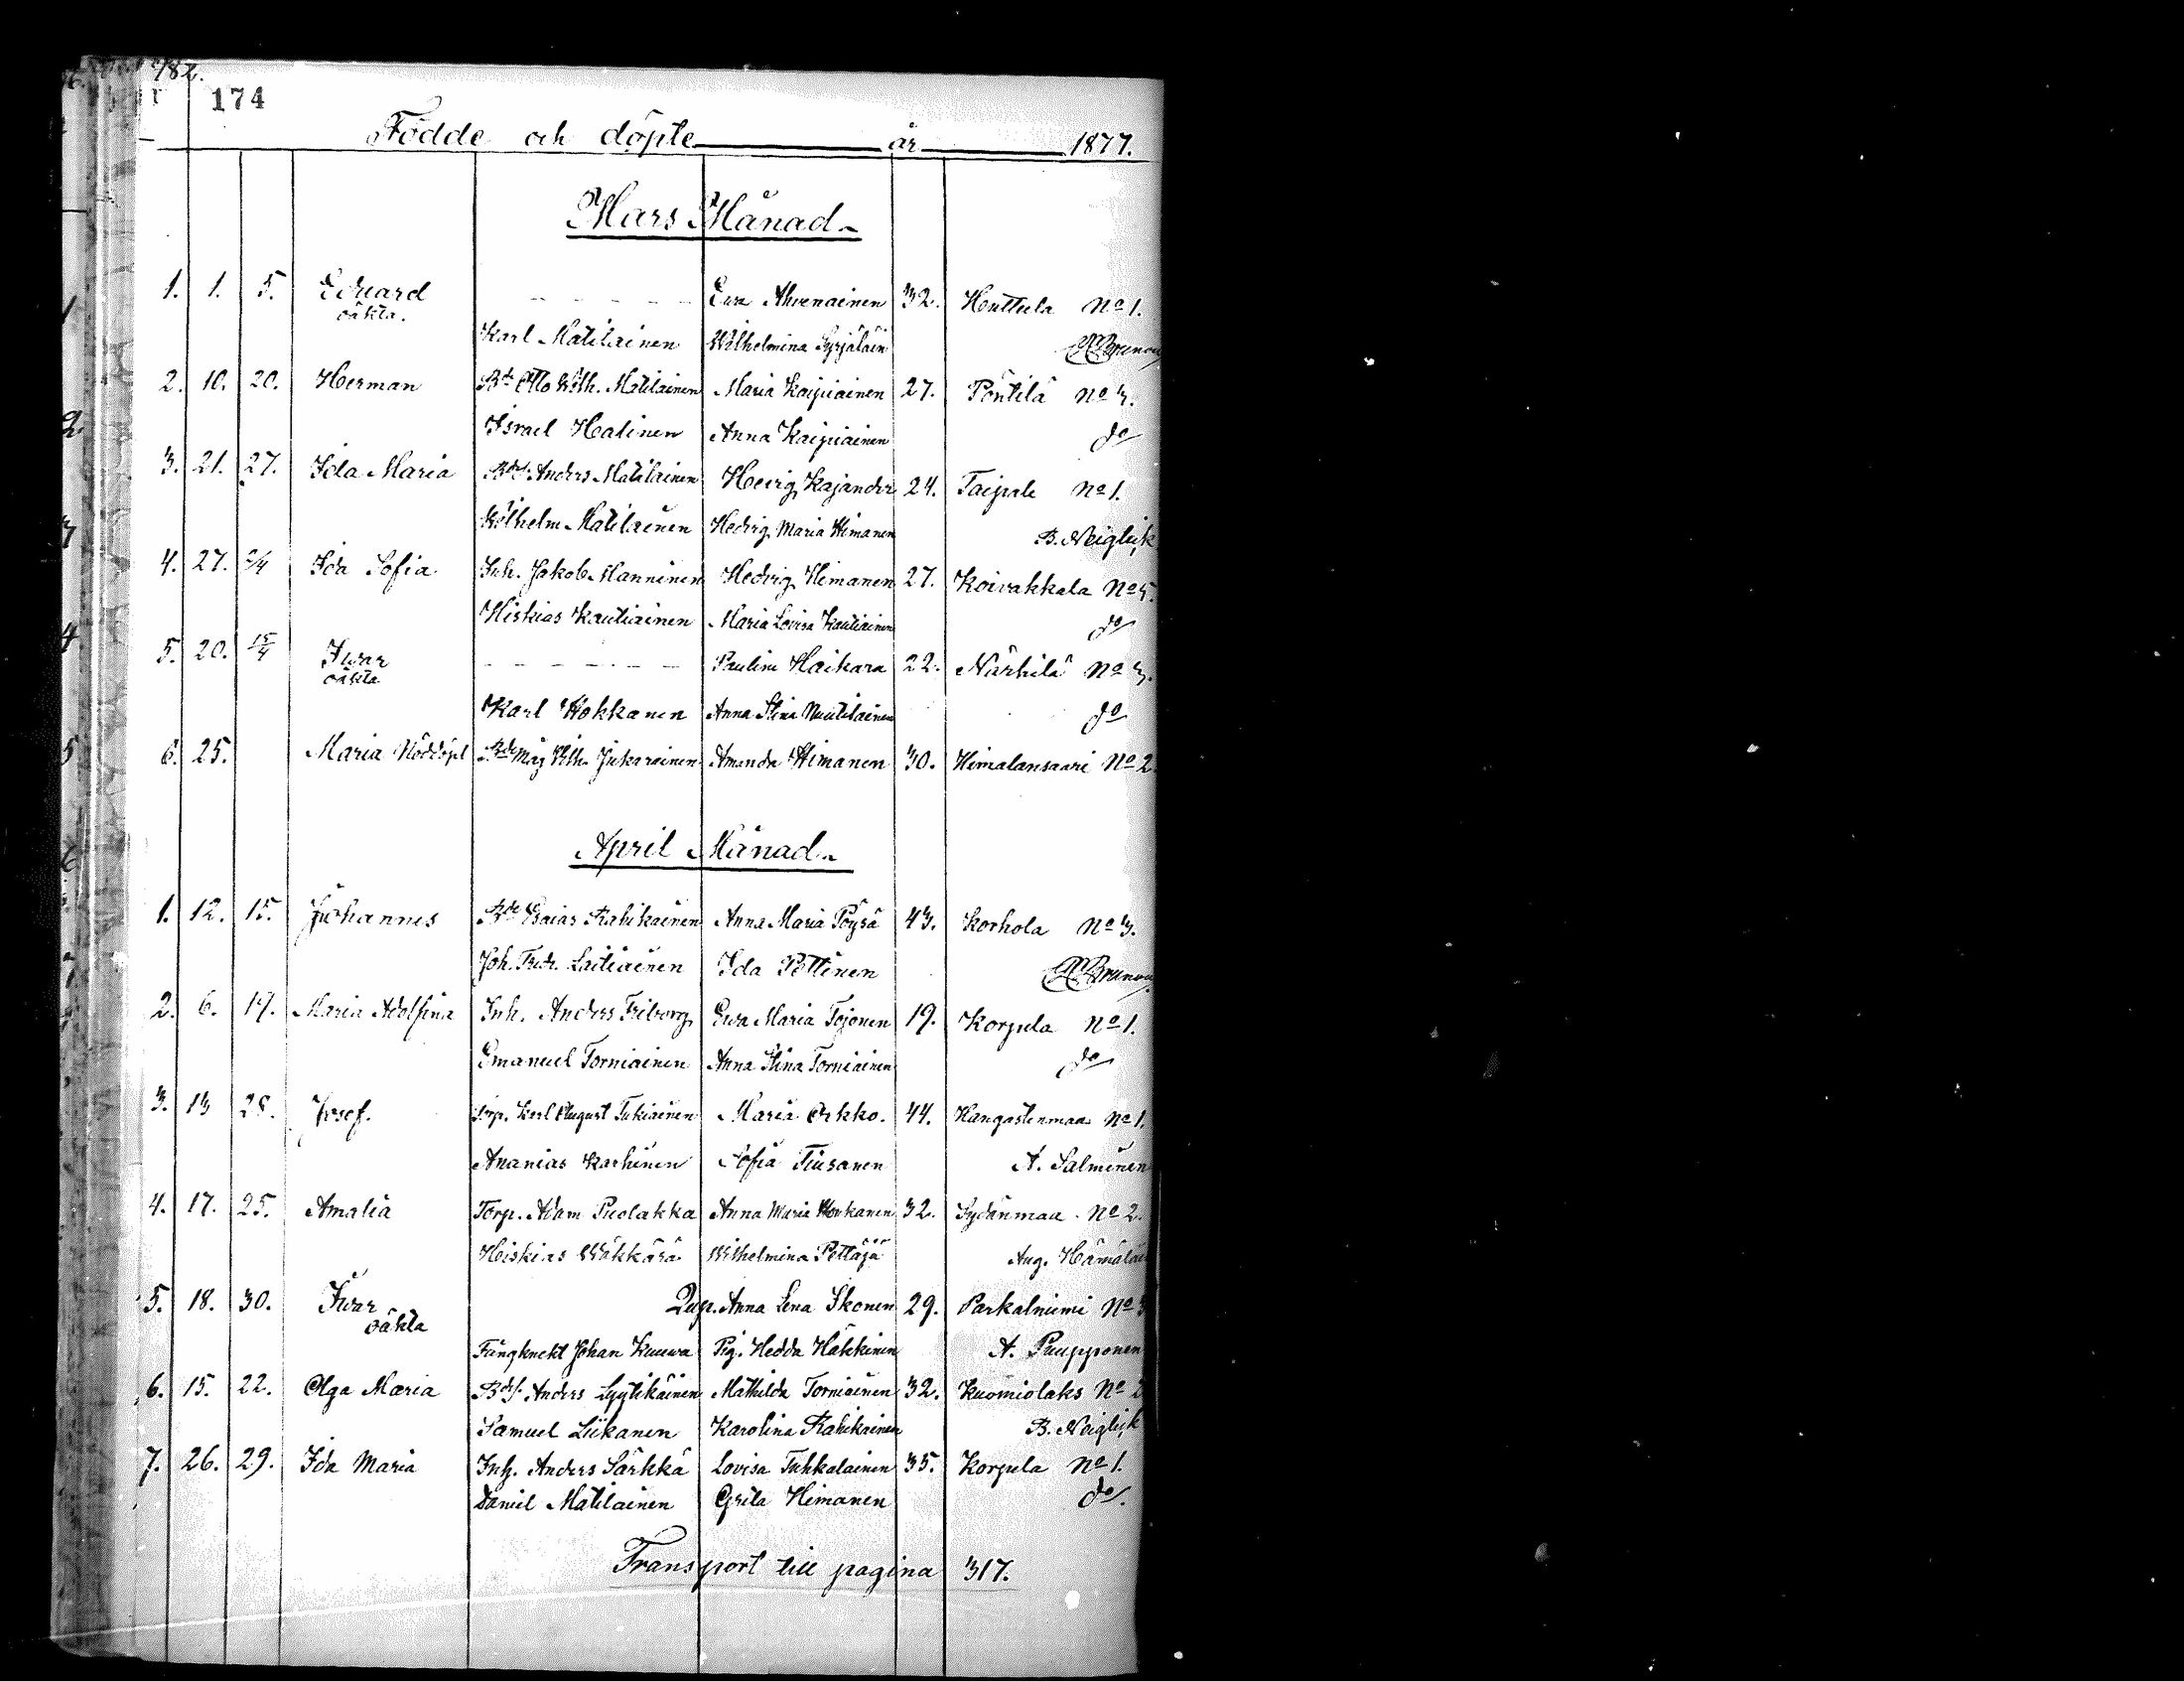 174
Födde och döpte år 1877.
Mars Månad
1. 1. 5. Eduard - - - - - Eva Ahvenainen 32. Henttula No 1.
oäkta.
Karl Matilainen Wilhelmina Syrjäläin
2. 10. 20. Herman Bd Otto Wilh. Matilainen Maria Kaipiainen 27. Pöntilä No 3.
Israel Halinen Anna Kaipiainen do
3. 21. 27. Ida Maria Bds. Anders Matilainen Hedvig Kajander 24. Taipale No 1.
Wilhelm Matilainen Hedvig Maria Himanen B. Neiglick
4. 27. 2/4 Ida Sofia Inh. Jakob Manninen Hedvig Himanen 27. Koivakkala No 5.
Hiskias Kautiainen Maria Lovisa Kautiainen do
5. 20. 15/4 Iwar - - - - - - Paulina Haikara 22. Närhilä No 3.
oäkta
Karl Hokkanen Anna Stina Nuutilainen do
6. 25. Maria Nöddöpt Bde Måg Wilh. Jukarainen Amanda Himanen 30. Himalansaari No 2.
April Månad
1. 12. 15. Johannes Bde Esaias Rahikainen Anna Maria Pöysä 43. Korhola No 3.
Joh. Fredr. Laitiainen Ida Pettinen
2. 6. 17. Maria Adolfina Inh. Anders Friborg Ewa Maria Tojonen 19. Korpela No 1.
Emanuel Torniainen Anna Stina Torniainen do
3. 13 28. Josef. Torp. Karl August Tukiainen Maria Orkko. 44. Hangastenmaa No 1.
Ananias Karhinen Sofia Tiusanen A. Salminen
4. 17. 25. Amalia Torp. Adam Puolakka Anna Maria Honkanen 32. Sydänmaa No 2.
Heiskias Wäkkärä Wilhelmina Pettäjä Aug. Hämäläi
5. 18. 30. Iwar Anna Lena Ikonen 29. Parkalniemi No 3
oäkta
Fångknekt Johan Kuuwa Pig. Hedda Häkkinen A. Puupponen
6. 15. 22. Olga Maria Bds. Anders Lyytikäinen Mathilda Torniainen 32. Kuomiolaks No 2
Samuel Liikanen Karolina Rahikainen B. Neiglick
7. 26. 29. Ida Maria Inh. Anders Särkkä Lovisa Tuhkalainen 35. Korpela No 1.
Daniel Matilainen Grita Himanen do.
Transport till pagina 317.